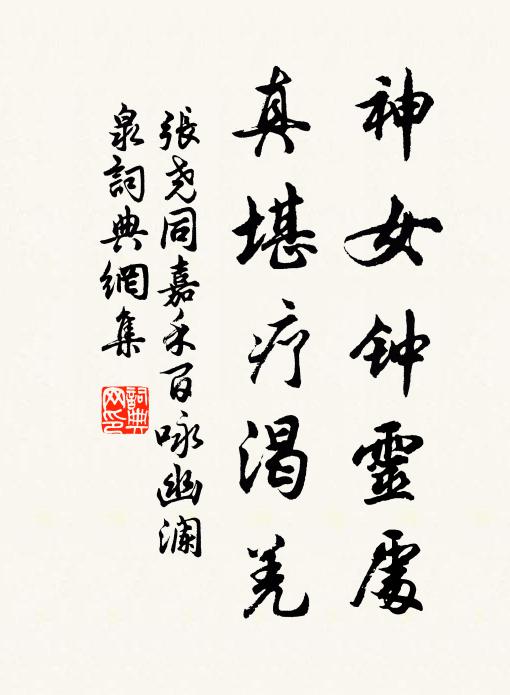 神女钟靈處
真堪疗渴羌
張尧同嘉禾百咏幽瀾
泉詞典網集
詞典
网印